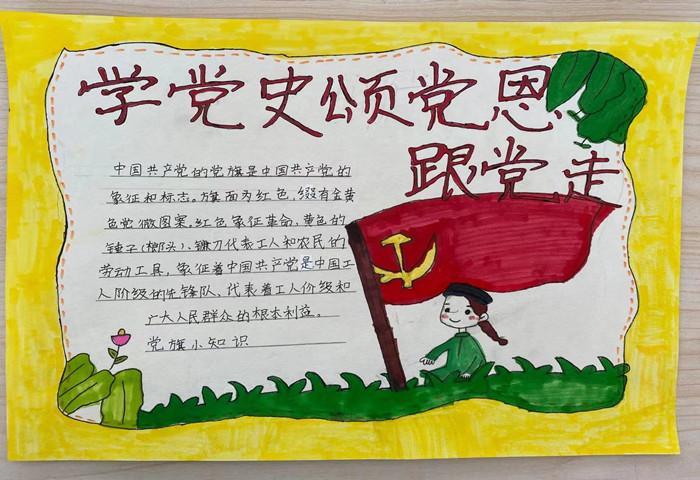 学党史颂党恩
跟党走
中国共产党的党旗是中国共产党的
象征和标志。旗面为红色,缀有金黄
色党徽图案。红色象征革命、黄色的
锤子(榔头)、镰刀代表工人和农民的
劳动工具,象征着中国共产党是中国工
人阶级的先锋队、代表着工人价级和
广大人民群众的根本利益。
党旗小知识